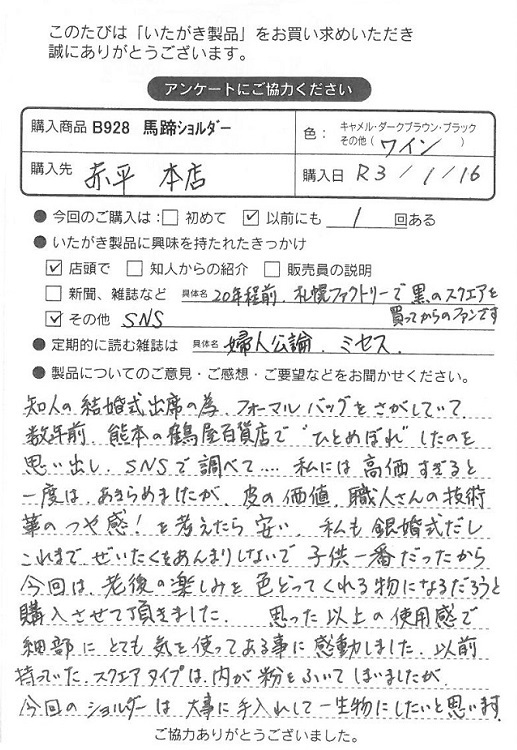 このたびは「いたがき製品」をお買い求めいただき
誠にありがとうございます。
アンケートにご協力ください
購入商品 B928 馬蹄ショルダー
色： キャメル・ダークブラウン・ブラック
その他（ ワイン ）
購入先 赤平 本店
購入日 R3/1/16
● 今回のご購入は：□ 初めて ☑ 以前にも 1 回ある
● いたがき製品に興味を持たれたきっかけ
☑ 店頭で □ 知人からの紹介 □ 販売員の説明
□ 新聞、雑誌など 具体名 20年程前、札幌ファクトリーで黒のスクエアを
買ってからのファンです
☑ その他 SNS
● 定期的に読む雑誌は 具体名 婦人公論、ミセス、
● 製品についてのご意見・ご感想・ご要望などをお聞かせください。
知人の結婚式出席の為、フォーマルバッグをさがしていて
数年前、熊本の鶴屋百貨店で“ひとめぼれ”したのを
思い出し、SNSで調べて.... 私には高価すぎると
一度は、あきらめましたが、皮の価値、職人さんの技術
革のつや感！を考えたら安い、私も銀婚式だし
これまで、ぜいたくをあんまりしないで子供一番だったから
今回は、老後の楽しみを色どってくれる物になるだろうと
購入させて頂きました。 思った以上の使用感で
細部にとても気を使ってある事に感動しました。以前
持っていた、スクエアタイプは、内が粉をふいてしまいましたが
今回のショルダーは大事に手入れして一生物にしたいと思います
ご協力ありがとうございました。